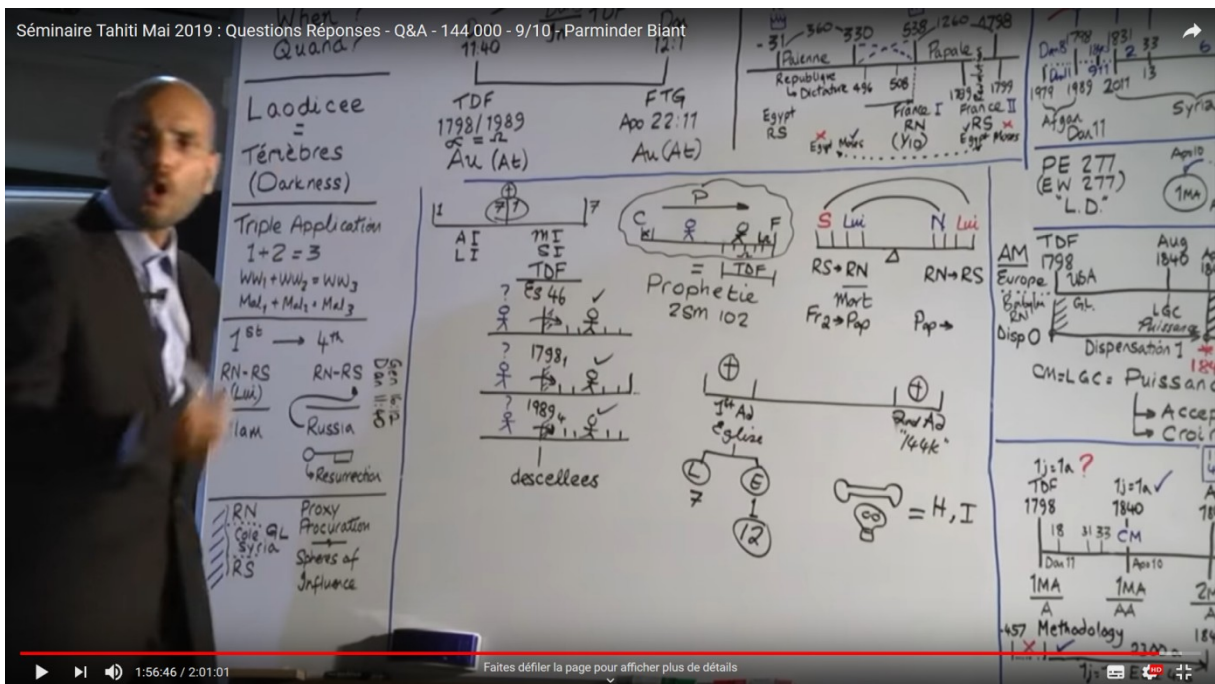 Séminaire Tahiti Mai 2019 : Questions Réponses - Q&A - 144 000 - 9/10 - Parminder Biant
When?
Quand?
Laodicee
=
Ténèbres
(Darkness)
Triple Application
1+2=3
WW1+WW2=WW3
Mal1+Mal2=Mal3
1st → 4th
RN-RS RN-RS
(Lui)
Russia
Resurrection
Dan 11:40
RN Proxy
Procuration
Syria
GL
RS
Spheres of
Influence
11:40 12:1
TDF FTG
1798/1989 Apo 22:11
α = Ω
Au (At) Au (At)
-31 360 330 538 1260 1798
Païenne Papale
Republique
Dictature 496 508 1789 1799
Egypt France I France II
RS RN RS
(Y10)
Egypt Moses Egypt Moses
1798 1831
1840 2 33 6
9/11 13
1979 1989 2011
Syria
Afgan
Dan 11
PE 277
(EW 277)
"L.D."
Apo10
1MA
1 7 1 7
AI MI
LI SI
TDF
? Es 46 ✓
? 1798, ✓
? 1989, ✓
descellees
C P F
= TDF
Prophetie
2SM 102
S Lui N Lui
RS→RN RN→RS
Mort
Fr2→Pap Pap→
1st Ad 2nd Ad
Eglise "144K"
L E
7 1
12
= H, I
AM TDF Aug
1798 1840
Europe USA
RN GL LGC
Puissance
Disp 0 Dispensation 1
CM=LGC=Puissan
→ Accep
→ Croi
1j=1a ?
TDF 1j=1a ✓
1798 1840
18 31 33 CM
Dan 11 Apo10
1MA 1MA 2M
A AA A
-457 Methodology 184
2300
1:56:46 / 2:01:01
Faites défiler la page pour afficher plus de détails
HD